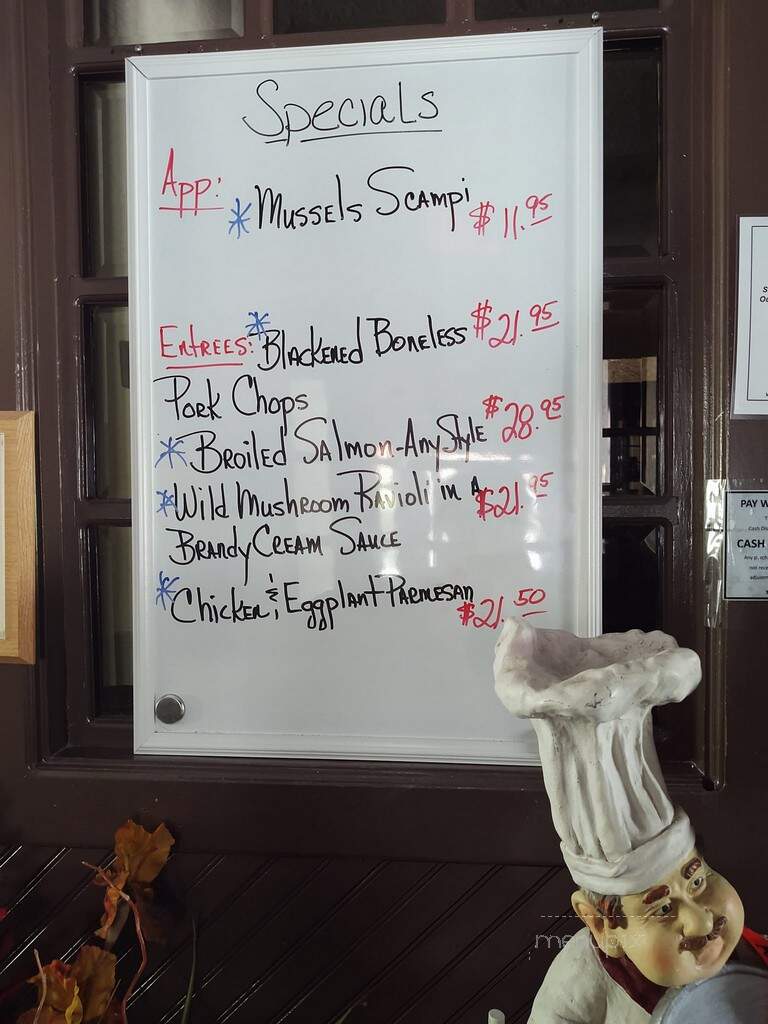 Specials
App:
* Mussels Scampi $11.95
Entrees: * Blackened Boneless $21.95
Pork Chops
* Broiled Salmon-Any Style $28.95
* Wild Mushroom Ravioli in A $21.95
Brandy Cream Sauce
* Chicken & Eggplant Parmesan $21.50
PAY W
Cash Dis
CASH
menupix